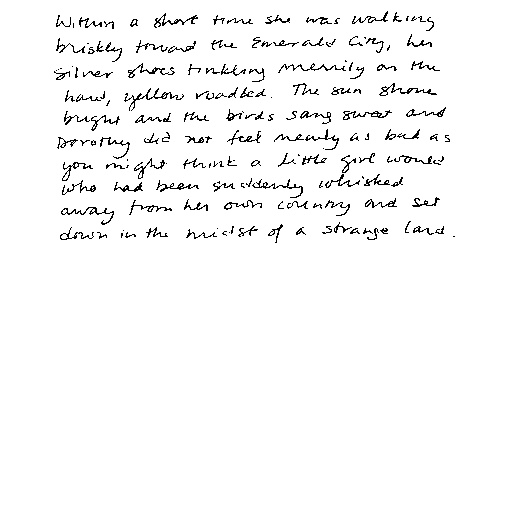 Within a short time she was walking
briskly toward the Emerald City, her
Silver Shoes tinkling merrily on the
hard, yellow roadbed. The sun shone
bright and the birds sang sweet and
Dorothy did not feel nearly as bad as
you might think a little girl would
who had been suddenly whisked
away from her own country and set
down in the midst of a strange land.